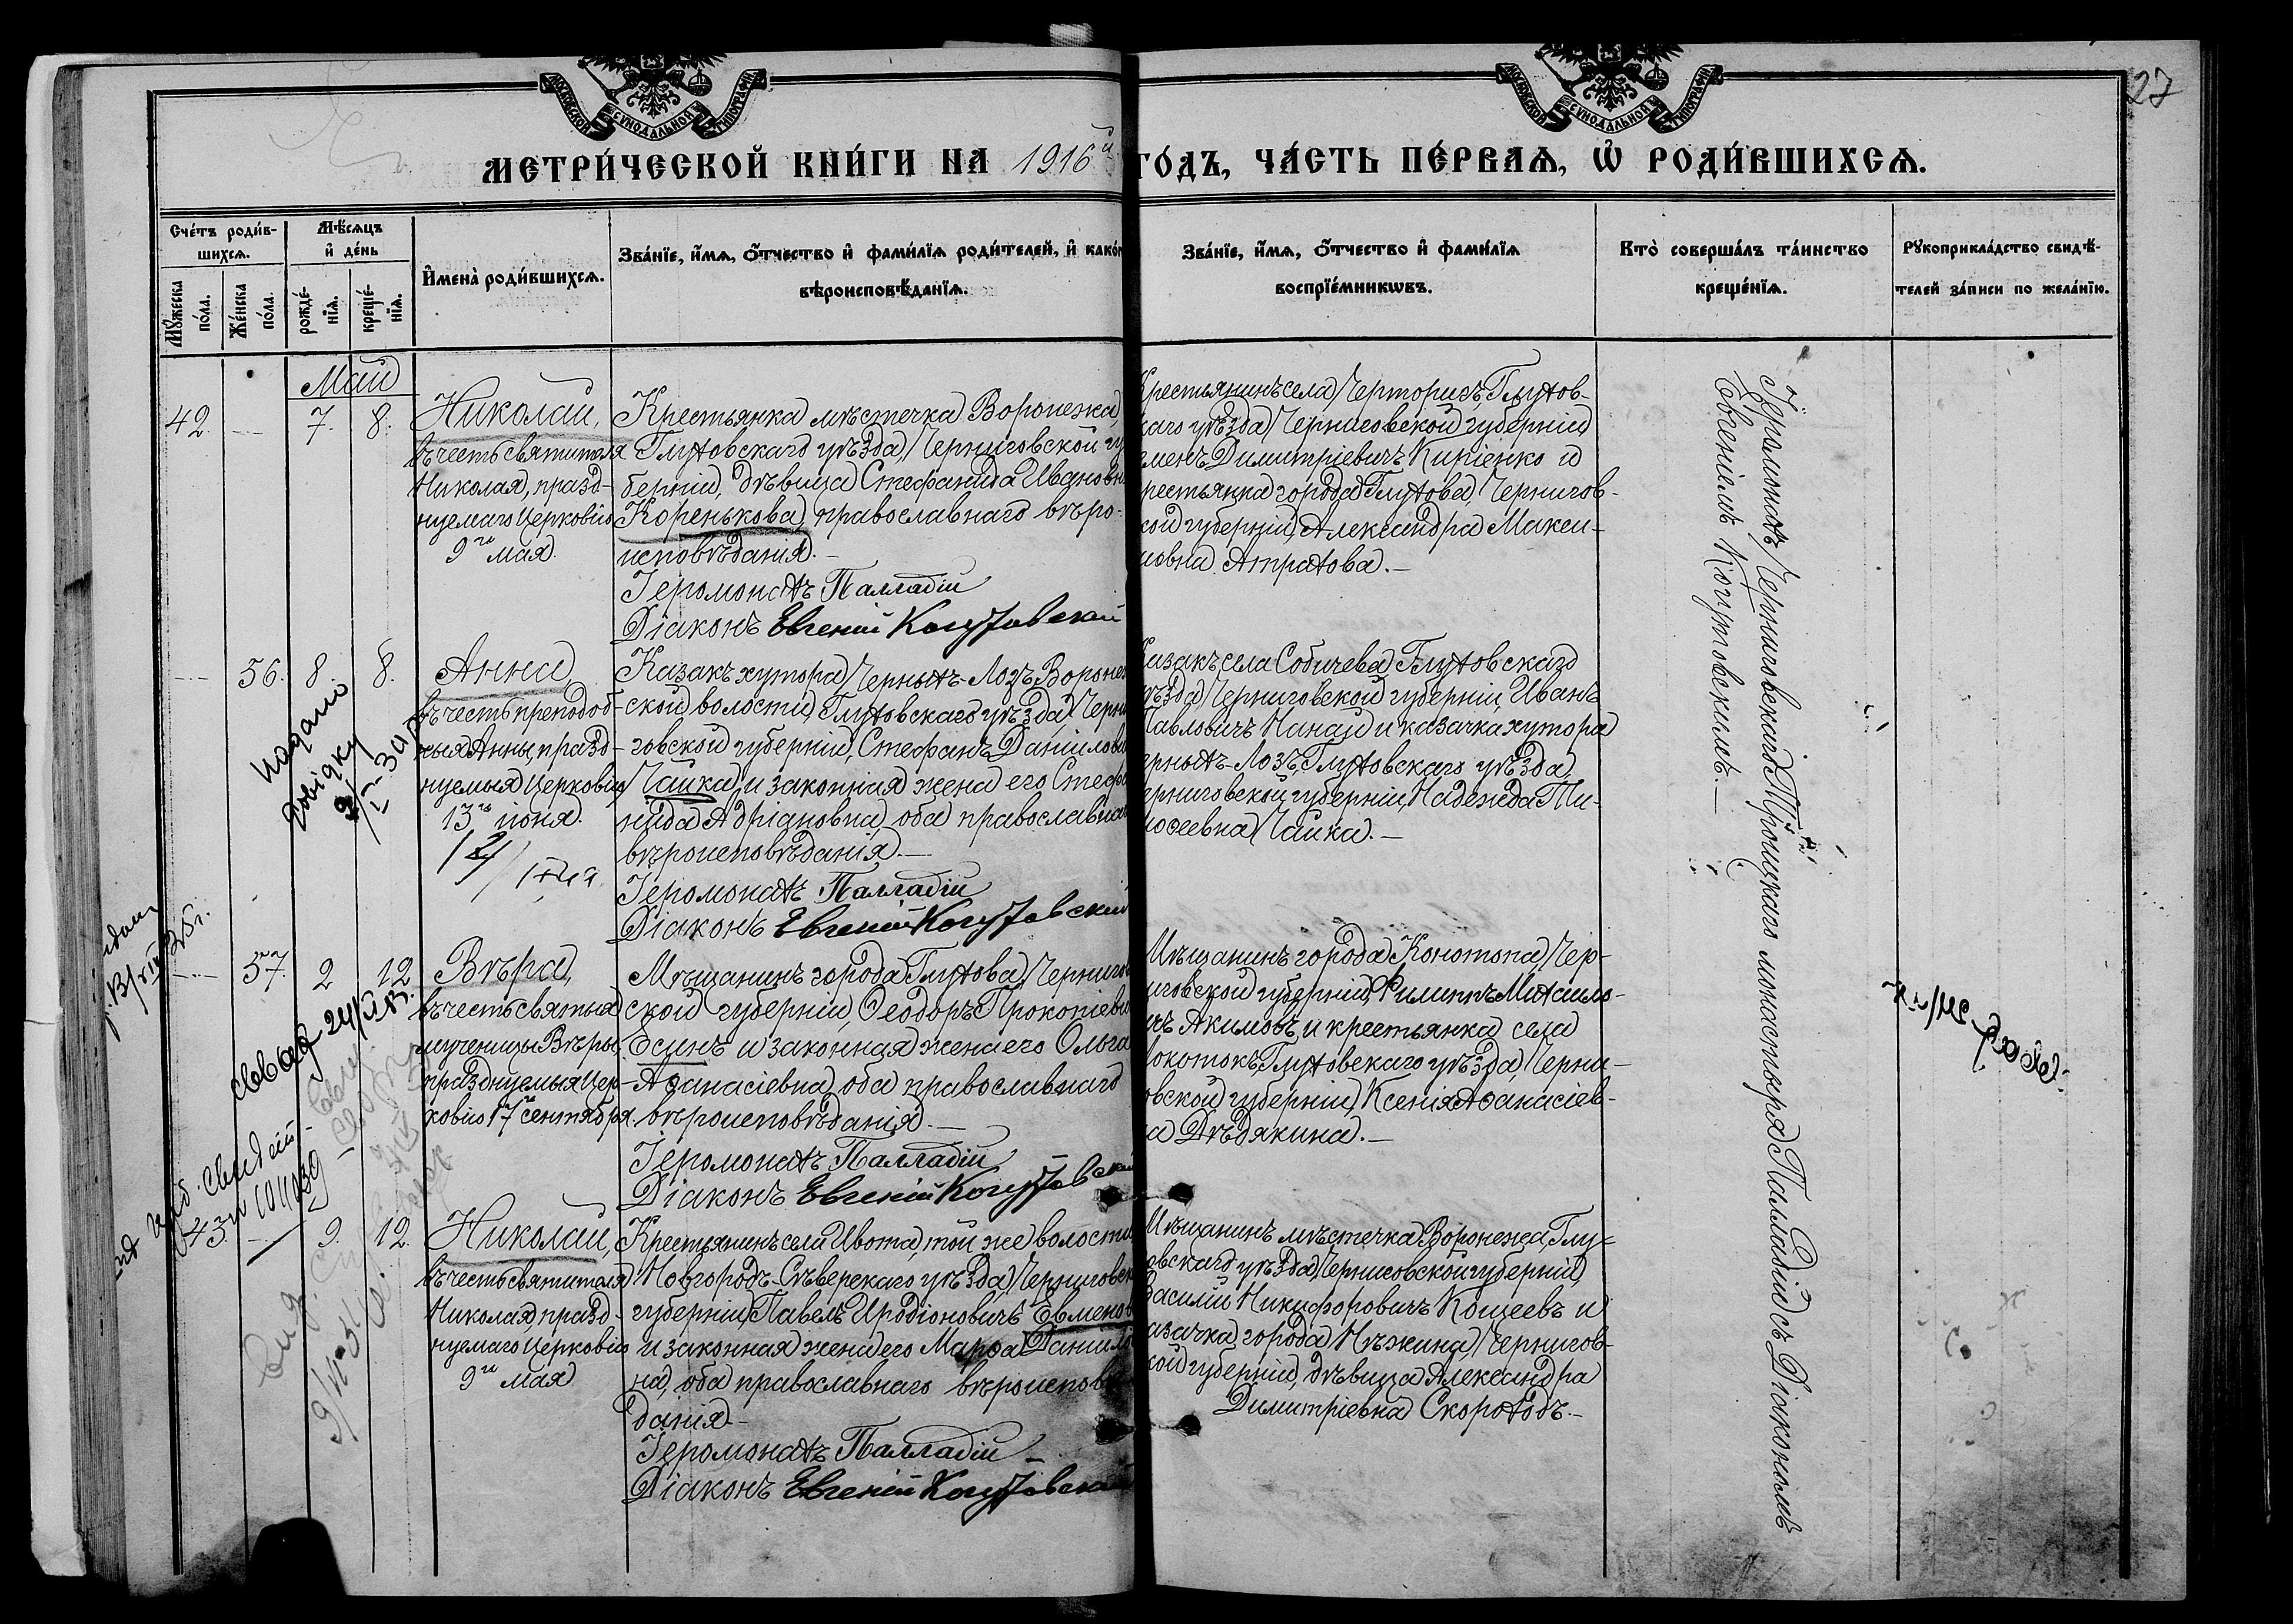 27
МОСКОВСКОЙ СУНОДАЛЬНОЙ ТИПОГРАФІИ
МОСКОВСКОЙ СУНОДАЛЬНОЙ ТИПОГРАФІИ
МЕТРИ́ЧЕСКОЙ КНИ́ГИ НА 1916й ГО́ДЪ, ЧА́СТЬ ПЕ́РВАѦ, Ѡ РОДИ́ВШИХСѦ.
Сче́тъ роди́в-
шихсѧ.
Мꙋ́жеска
по́ла.
Же́нска
по́ла.
Мѣ́сѧцъ
и де́нь
рожде́-
нїѧ.
креще́-
нїѧ.
Имена̀ роди́вшихсѧ.
Зва́нїе, и́мѧ, ѻ́тчество и фами́лїѧ роди́телей, и како́г
вѣроисповѣ́данїѧ.
Зва́нїе, и́мѧ, ѻ́тчество и фами́лїѧ
воспрїе́мникѡвъ.
Кто̀ соверша́лъ та́инство
креще́нїѧ.
Рꙋкоприкла́дство свидѣ́-
телей за́писи по жела́нїю.
Май
42. — 7. 8.
Николай,
въ честь святителя
Николая, празд-
нуемаго Церковію
9го мая.
Крестьянка мѣстечка Воронежа,
Глуховскаго уѣзда, Черниговской гу
берніи, дѣвица Стефанида Ивановн
Коренькова, православнаго вѣро-
исповѣданія.—
Іеромонахъ Палладій
Діаконъ Евгеній Когутовский
крестьянинъ села Черториг, Глухов-
каго уѣзда Черниговской губерніи,
еменъ Димитріевичъ Кипіенко и
рестьянка города Глухова, Чернигов-
кой губерніи, Александра Макси-
мовна Атрахова.—
Іеромонахъ Черниговскаго Троицкаго монастыря Палладій съ Діакономъ
Евгеніемъ Когутовскимъ.—
— 56. 8. 8.
Анна,
въ честь преподоб-
ныя Анны, празд-
нуемыя Церковію
13го іюня.
Казакъ хутора Черныхъ-Лозъ, Вороне
ской волости, Глуховскаго уѣзда, Черни
говской губерніи, Стефанъ Данілови
Чайка и законная жена его Стефа
нида Адріановна, оба православна
вѣроисповѣданія.—
Іеромонахъ Палладій
Діаконъ Евгеній Когутовский
Казакъ села Собичева, Глуховскаго
уѣзда, Черниговской губерніи, Иванъ
Павловичъ Нанай и казачка хутора
ерныхъ-Лозъ, Глуховскаго уѣзда,
ерниговской губерніи, Надежда Ти-
моѳеевна Чайка.—
надано
довідку
— 57. 2 12
Вѣра,
въ честь святыя
мученицы Вѣры,
празднуемыя Цер-
ковію 17 сентября.
Мѣщанинъ города Глухова, Чернигов
ской губерніи, Ѳеодоръ Прокопіеви
Есинъ и законная жена его Ольга
Аѳанасіевна, оба православнаго
вѣроисповѣданія.—
Іеромонахъ Палладій
Діаконъ Евгеній Когутовский
Мѣщанинъ города Конотопа, Чер-
иговской губерніи, Филиппъ Михаило-
ичъ Акимовъ и крестьянка села
локотокъ, Глуховскаго уѣзда, Черни-
овской губерніи, Ксенія Аѳанасіев-
а Дѣдякина.—
43. — 9. 12.
Николай,
въ честь святителя
Николая, празд-
нуемаго Церковію
9го мая
Крестьянинъ села Ивота, той же волости
Новгородъ-Сѣверскаго уѣзда, Черниговск
губерніи, Павелъ Иродіоновичъ Евменов
и законная жена его Марѳа Данило
на, оба православнаго вѣроисповѣ
данія.—
Іеромонахъ Палладій
Діаконъ Евгеній Когутовский
Мѣщанинъ мѣстечка Воронежа, Глу-
овскаго уѣзда, Черниговской губерніи,
Василій Никифоровичъ Кощеевъ и
азачка города Нѣжина, Чернигов-
кой губерніи, дѣвица Александра
Димитріевна Скороходъ.—